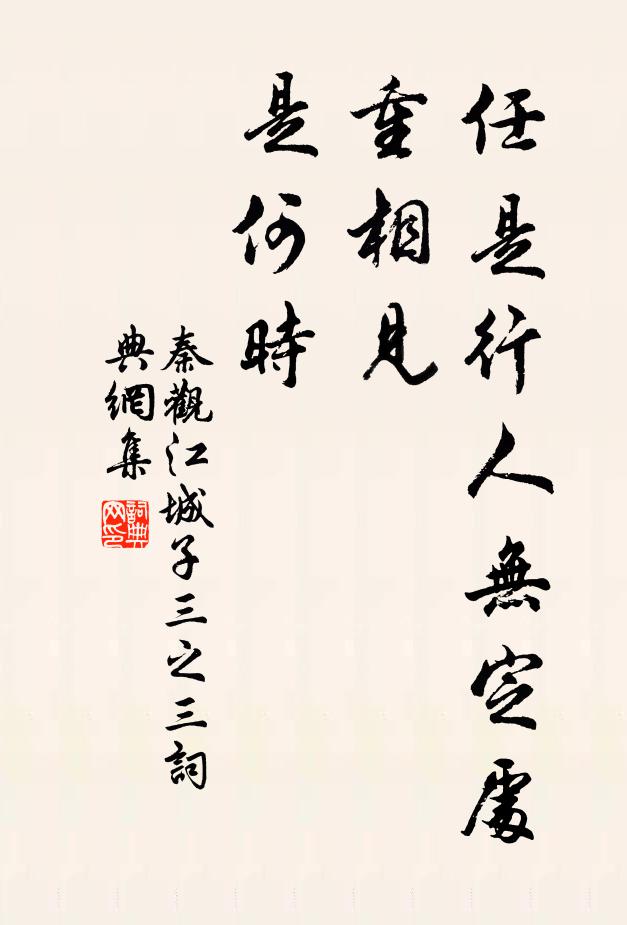 任是行人無定處
重相見
是何時
秦觀江城子三之三詞
典網集
詞典网印